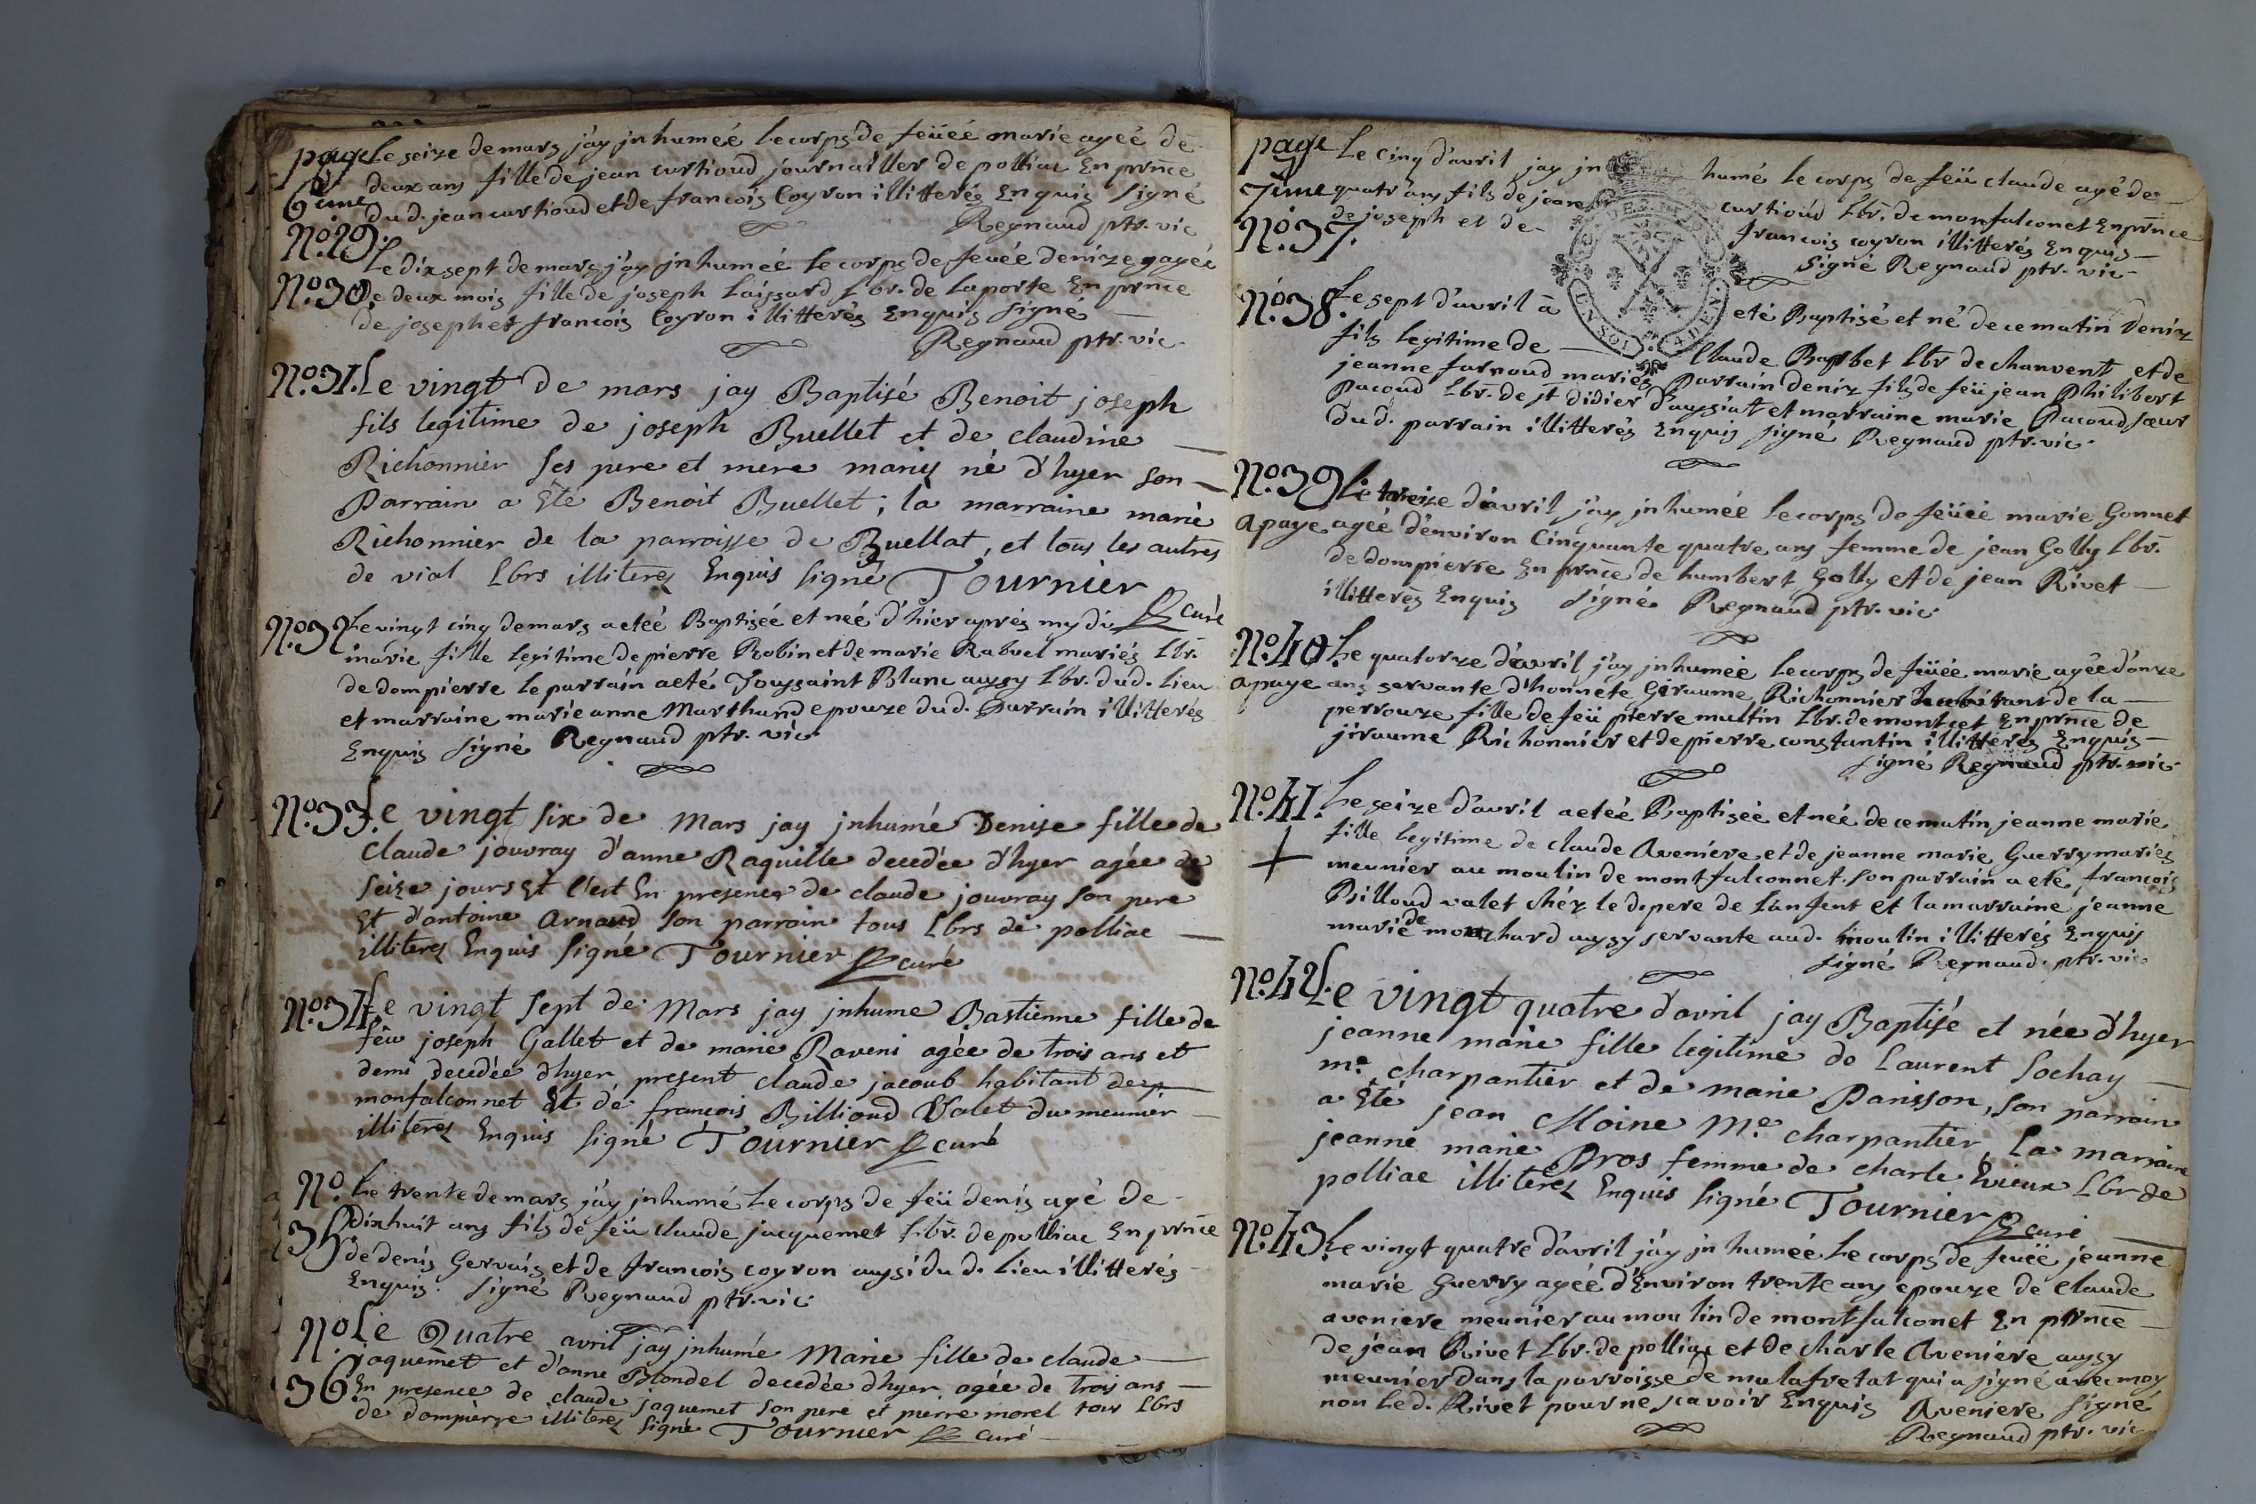 page Le seize de mars j'ay jnhumeé le corps de feüeé marie ageé de
6eme deux ans fille de jean curtioud journailler de polliac En prnce
du d. jean curtioud et de francois Coyron illitterés Enquis signé
No. 29. Regnaud ptr. vic
Le dix sept de mars j'ay jnhumeé le corps de feueé denize ageé
No. 30 de deux mois fille de joseph Laissard Lbr. de laporte En prnce
de joseph et francois Coyron illitterés Enquis signé
Regnaud ptr. vic
No. 31. Le vingt de mars jay Baptisé Benoit joseph
fils legitime de joseph Buellet et de claudine
Richonnier ses pere et mere mariez né d'hyer son
Parrain a Eté Benoit Buellet; la marraine marie
Richonnier de la parroisse de Buellat, et tous les autres
de vial Lbrs illiterez Enquis signé Tournier
curé
No. 32 Le vingt cinq de mars aeteé Baptiseé et neé d'hier aprés mydi
marie fille legitime de pierre Robin et de marie Rabuel mariés Lbr.
de dompierre le parrain aeté Toussaint Blanc aussy Lbr. dud. lieu
et marraine marie anne Marthand epouze dud. Parrain illitterés
Enquis signé Regnaud ptr. vic
No. 33. Le vingt six de Mars jay jnhumé Denise fille de
Claude jouvray d'anne Raquille decedée d'hyer agée de
seize jours Et c'est En presence de claude jouvray son pere
Et d'antoine Arnaud son parrain tous Lbrs de polliac
illiterez Enquis signé Tournier curé
No. 34 Le vingt sept de Mars jay jnhume Bastienne fille de
feu joseph Gallet et de marie Raveni agée de trois ans et
demi decedée d'hyer present claude jacoub habitant de
monfalconnet Et de francois Billioud Valet du meunier
illiterez Enquis signé Tournier curé
No. Le trente de mars j'ay jnhumé le corps de feü denis agé de
35 dixhuit ans fils de feü claude jacquemet Lbr. de polliac En prnce
de denis Gervais et de francois coyron aussi du d. lieu illitterés
Enquis. signé Regnaud ptr. vic
No. Le Quatre avril jay jnhumé Marie fille de claude
jaquemet et d'anne Blondel decedée d'hyer agée de trois ans
36 En presence de claude jaquemet son pere et pierre morel tous Lbrs
de dompierre illiterez signé Tournier curé
page Le cinq d'avril jay jnhumé le corps de feü claude agé de
7eme quatr'ans fils de jean curtioud Lbr. de monfalconet En prnce
No. 37. de joseph et de francois coyron illitterés Enquis
signé Regnaud ptr. vic
No. 38. Le sept d'avril à eté Baptisé et né de ce matin Deniz
fils legitime de Claude Barbet Lbr de chanvent et de
jeanne farvoud mariés Parrain deniz fils de feü jean Philibert
Pacoud Lbr. de st didier d'aussiat et marraine marie Pacoud sœur
du d. parrain illitterés Enquis signé Regnaud ptr. vic.
No. 39 Le treize d'avril j'ay jnhumeé le corps de feüeé marie Gonnet
a paye ageé d'environ Cinquante quatre ans femme de jean Golly Lbr.
de dompierre En prnce de humbert Golly et de jean Rivet
illitterés Enquis signé Regnaud ptr. vic
No. 40. Le quatorze d'avril j'ay jnhumeé le corps de feüée marie agée d'onze
a paye ans servante d'honnete Giraume Richonnier habitant de la
perrouze fille de feü pierre multin Lbr. de montcet En prnce de
jiraume Richonnier et de pierre constantin illitterés Enquis
signé Regnaud ptr. vic.
No. 41. Le seize d'avril aeteé Baptiseé et neé de ce matin jeanne marie
fille legitime de claude Aveniere et de jeanne marie Guerry mariés
meunier au moulin de montfalconnet. son parrain a eté francois
Billoud valet chéz le d. pere de l'enfent et la marraine jeanne
marie de monchard aussy servante aud. moulin illitterés Enquis
signé Regnaud. ptr. vic
No. 42. Le vingt quatre d'avril jay Baptisé et née d'hyer
jeanne marie fille legitime de Laurent Sochay
me. charpantier et de marie Panisson, son parrain
a Eté jean Moine Me. charpantier, la marraine
jeanne marie Pros femme de charle Evieux Lbr de
polliac illiterez Enquis signé Tournier
curé
No. 43. Le vingt quatre d'avril j'ay jnhumeé le corps de feüeé jeanne
marie Guerry ageé d'Environ trente ans epouze de claude
aveniere meunier au moulin de montfalconet En prnce
de jean Rivet Lbr. de polliac et de charle Aveniere aussy
meunier dans la parroisse de malafretat qui a signé avec moy
non le d. Rivet pour ne scavoir Enquis Aveniere signé
Regnaud ptr. vic